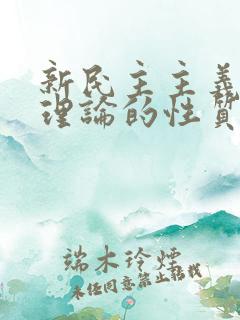 新民主主義
理論的性質
端木玲煙
未徑同意禁止轉載